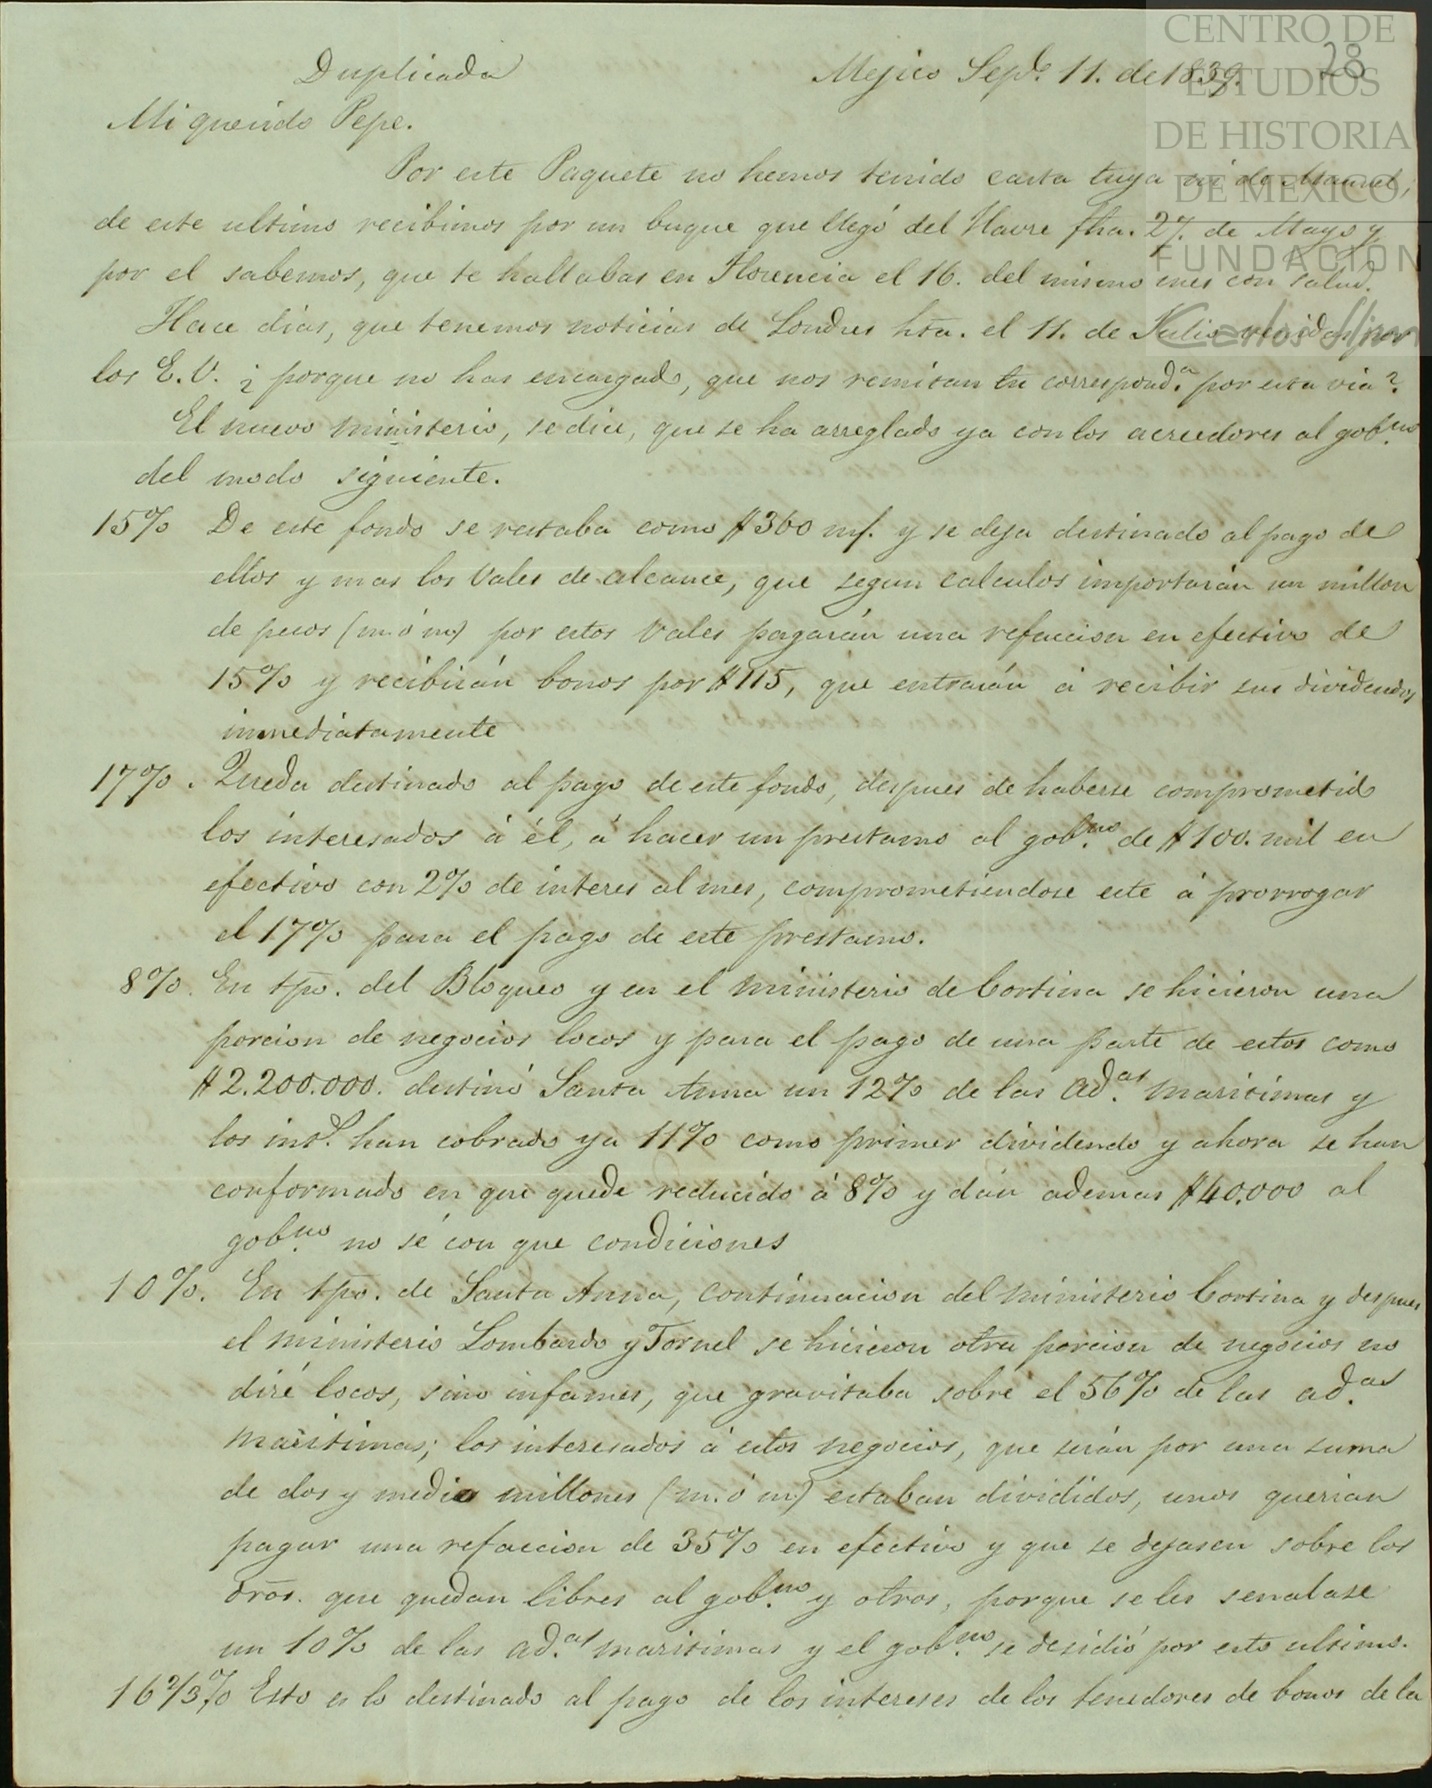 CENTRO DE
ESTUDIOS
DE HISTORIA
DE MEXICO
FUNDACIÓN
Carlos Slim
28
Duplicada Mejico Sepe. 11. de 1839.
Mi querido Pepe.
Por este Paquete no hemos tenido carta tuya ni de Manuel;
de este ultimo recibimos por un buque que llegó del Havre fha. 27. de Mayo y
por el sabemos, que te hallabas en Florencia el 16. del mismo mes con salud.
Hace dias, que tenemos noticias de Londres hta. el 11. de Julio venidas por
los E.U. ¿ porque no has encargado, que nos remitan tu correspond.a por esta via?
El nuevo ministerio, se dice, que se ha arreglado ya con los acreedores al gob.no
del modo siguiente.
15% De este fondo se restaba como $360 m/. y se deja destinado al pago de
ellos y mas los Vales de alcance, que segun calculos importarán un millon
de pesos (m. ó m) por estos Vales pagarán una refaccion en efectivo de
15% y recibirán bonos por $115, que entrarán á recibir sus dividendos
inmediatamente
17%. Queda destinado al pago de este fondo, despues de haberse comprometido
los interesados á él, á hacer un prestamo al gob.no de $100. mil en
efectivo con 2% de interes al mes, comprometiendose este á prorrogar
el 17% para el pago de este prestamo.
8%. En tpo. del Bloqueo y en el ministerio de Cortina se hicieron una
porcion de negocios locos y para el pago de una parte de estos como
$2.200.000. destinó Santa Anna un 12% de las ad.as maritimas y
los ints. han cobrado ya 11% como primer dividendo y ahora se han
conformado en que quede reducido á 8% y dán ademas $40.000 al
gob.no no sé con que condiciones
10%. En tpo. de Santa Anna, continuacion del ministerio Cortina y despues
el ministerio Lombardo y Tornel se hicieron otra porcion de negocios no
diré locos, sino infames, que gravitaba sobre el 56% de las ad.as
maritimas; los interesados á estos negocios, que serán por una suma
de dos y medio millones (m. ó m) estaban divididos, unos querian
pagar una refaccion de 35% en efectivo y que se dejasen sobre los
dros. que quedan libres al gob.no y otros, porque se les senalase
un 10% de las ad.as maritimas y el gob.no se desidió por esto ultimo.
16 2/3% Esto es lo destinado al pago de los intereses de los tenedores de bonos de la